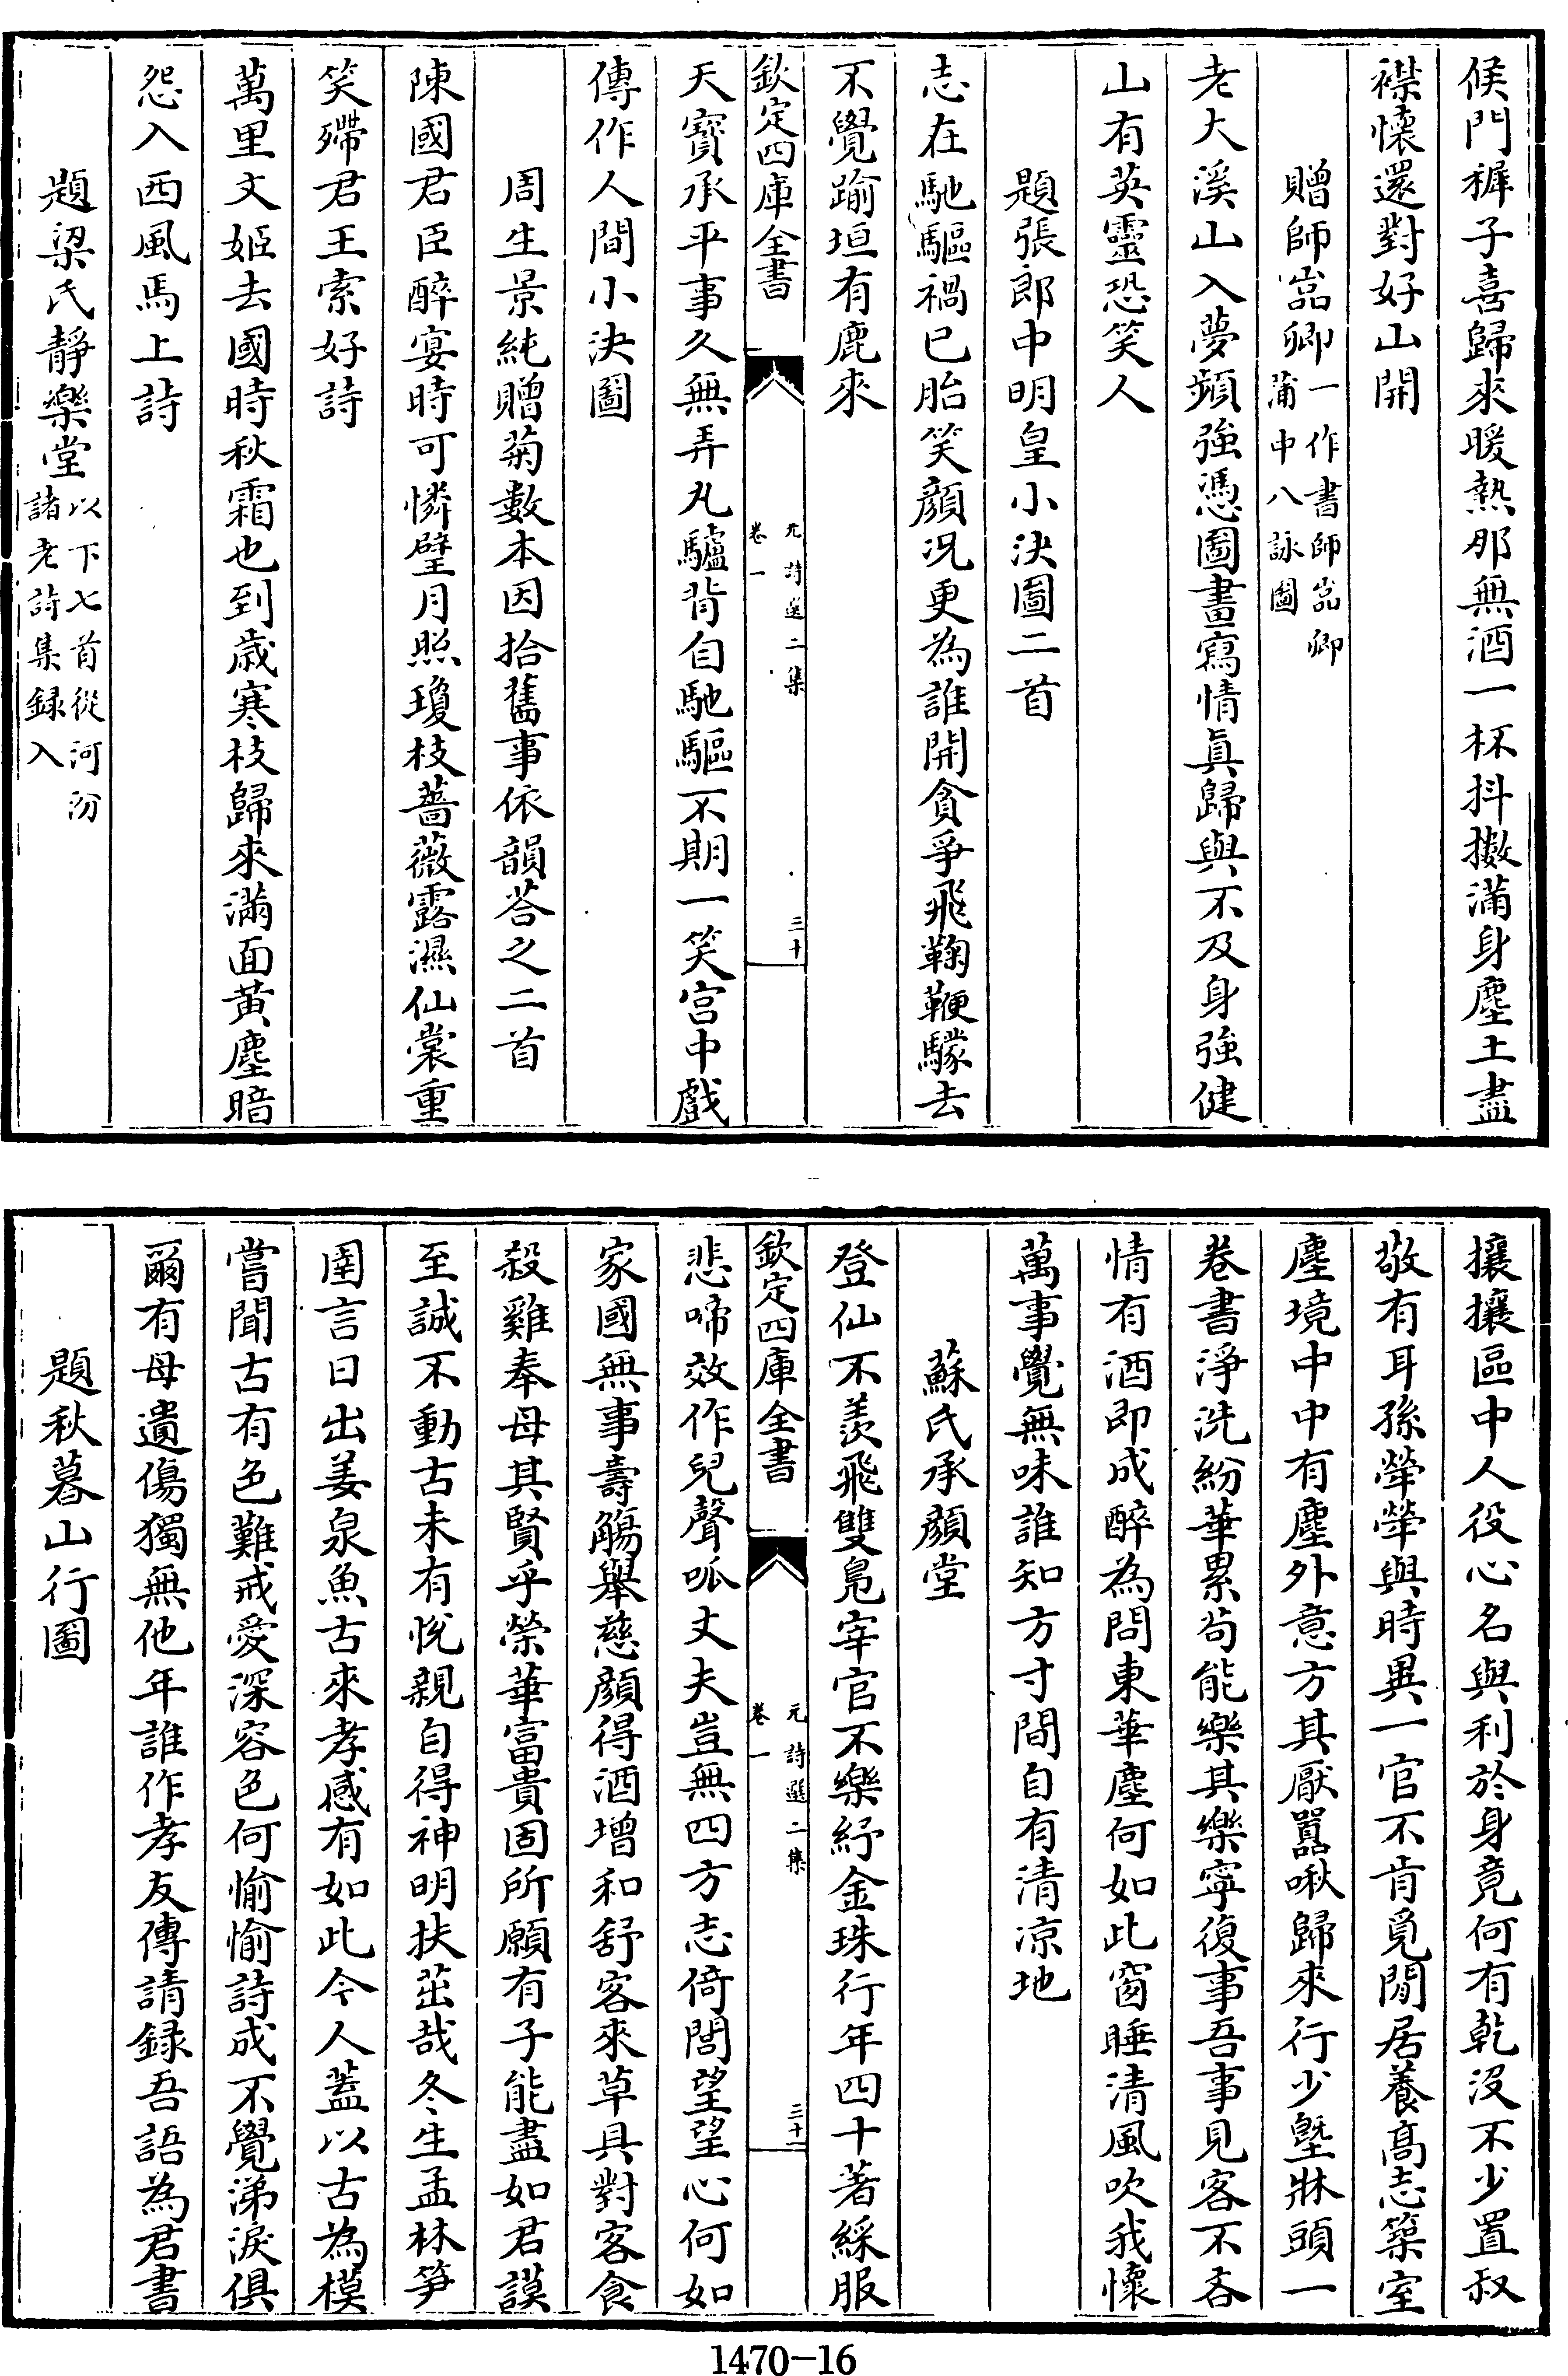 候門稺子喜歸來暖熱那無酒一杯抖擻滿身塵土盡
襟懷還對好山開
贈師嵓卿一作書師嵓卿
蒲中八詠圖
老大溪山入夢頻強憑圖畫寫情真歸與不及身強健
山有英靈恐笑人
題張郎中明皇小決圖二首
志在馳驅禍已胎笑顏况更為誰開貪爭飛鞠鞭驟去
不覺踰垣有鹿來
欽定四庫全書
元詩選二集
卷一
三十
天寶承平事久無弄丸驢背自馳驅不期一笑宫中戲
傳作人間小決圖
周生景純贈菊數本因拾舊事依韻荅之二首
陳國君臣醉宴時可憐璧月照瓊枝薔薇露濕仙裳重
笑殢君王索好詩
萬里文姬去國時秋霜也到歲寒枝歸來滿面黄塵暗
怨入西風馬上詩
題梁氏靜樂堂以下七首從河汾
諸老詩集録入
攘攘區中人役心名與利於身竟何有乾沒不少置叔
敬有耳孫犖犖與時異一官不肯覓閒居養高志築室
塵境中中有塵外意方其厭囂啾歸來行少墍牀頭一
卷書淨洗紛華累苟能樂其樂寧復事吾事見客不吝
情有酒即成醉為問東華塵何如此窗睡清風吹我懷
萬事覺無味誰知方寸間自有清凉地
蘇氏承顏堂
登仙不羨飛雙鳧宰官不樂紆金珠行年四十著綵服
欽定四庫全書
元詩選二集
卷一
三十一
悲啼效作兒聲呱丈夫豈無四方志倚閭望望心何如
家國無事壽觴舉慈顏得酒增和舒客來草具對客食
殺雞奉母其賢乎榮華富貴固所願有子能盡如君謨
至誠不動古未有悅親自得神明扶茁哉冬生孟林笋
圉言日出姜泉魚古來孝感有如此今人蓋以古為模
嘗聞古有色難戒愛深容色何愉愉詩成不覺涕淚俱
爾有母遺傷獨無他年誰作孝友傳請録吾語為君書
題秋暮山行圖
1470-16